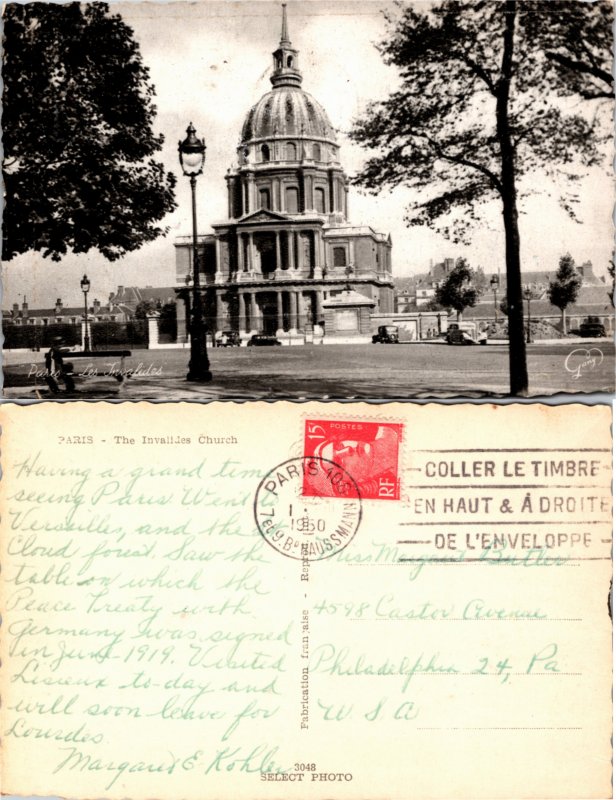 Paris - Les Invalides
Gany
PARIS - The Invalides Church
Having a grand time
seeing Paris Went
Versailles, and the
Cloud forest. Saw the
table on which the
Peace Treaty with
Germany was signed
in June 1919. Visited
Lisieux to-day and
will soon leave for
Lourdes.
Margaret E Kohler
POSTES
15F
RF
PARIS 108
1950
Bd HAUSSMANN
COLLER LE TIMBRE
EN HAUT & À DROITE
DE L'ENVELOPPE
Miss Margaret Butler
4598 Castor Avenue
Philadelphia 24, Pa
U.S.A
Fabrication française - Repro
3048
SELECT PHOTO